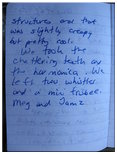 structures are that
was slightly creepy
but pretty cool.
We took the
chattering teeth and
the harmonica. We
left two whistles
and a mini frisbee.
Meg and